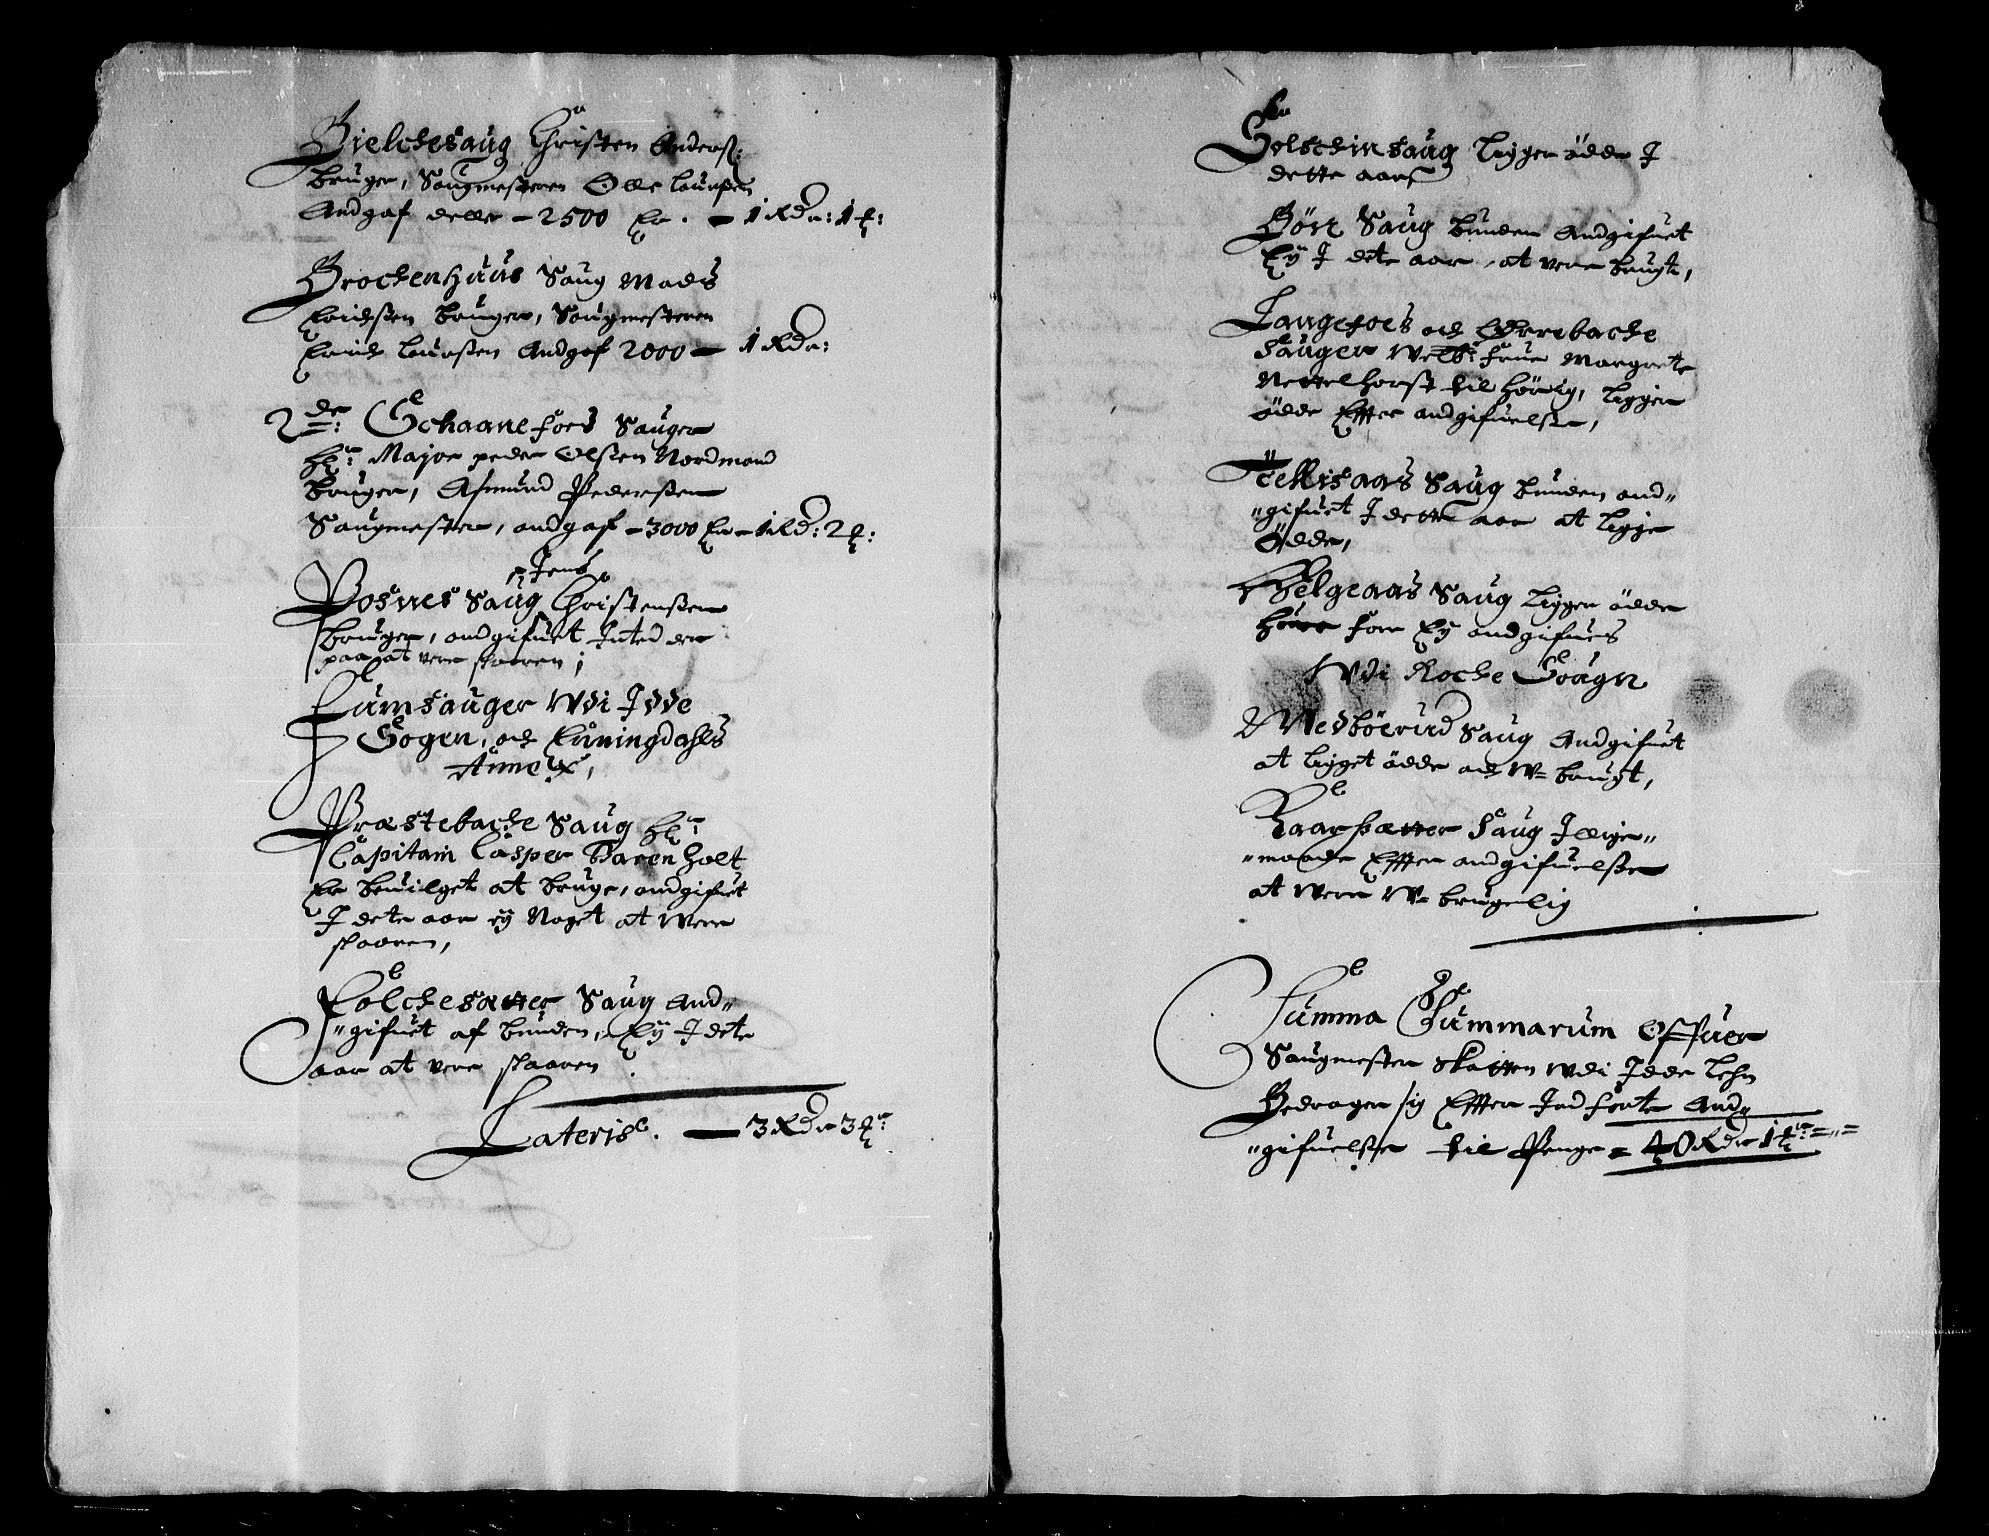 Bielchesaug Christen Anderss:
bruger, Saugmesteren Olle Laursen
Andgaf delle – 2500 Er. – 1 Rdr: 1 ƭ:
Brochenhuus Saug Mads
Erichsen bruger, Saugmesteren
Erich Laursen Andgaf 2000 – 1 Rdr:
2de: Schaanefoes Sauger
Hr: Major peder Olsen Nordmand
bruger, Asmund Pedersen
Saugmester, andgaf – 3000 Er – 1 Rd: 2 ƭ:
Jens
Posnes Saug Christensen
bruger, andgifuet Inted der
paa at vere skaaren;
Lumsauger Wdi Idde
Sogen, och Enningdahls
Annex,
Præstebache Saug Hr:
Capitain Casper Barenholt
Er beuilget at bruge, andgifuet
I dete aar ey Noget at Were
skaaren,
Folchesætter Saug And„
„gifuet af bunden, Ey I dete
aar at vere skaaren
Lateris. — 3 Rdr 3 ƭr:
Solschin saug ligger ödde I
dette aar
Börr Saug bunden Andgifuet
Ey I dete aar, at vere brugt,
Langefoes och Ørrebache
Sauger Welb: frue Margrete
Nettelhorst til Hövig, ligger
ödde Effter andgifuelse,
Tellisaas Saug bunden and„
„gifuet I dette aar at ligge
Ödde,
Helgeaas Saug ligger ödde
huor for Ey andgifues
Wdi Rocke Sougn
Nedböerud Saug Andgifuet
at ligget ödde och W= brugt,
Kaarsætter Saug I lige„
„maade Effter andgifuelse
at Were W= brugelig
Summa Summarum Offuer
Saugmester Skatten wdi Idde Lehn
Bedrager sig Effter Indförte And„
„gifuelse til Penge = 40 Rdr 1 ƭr: = „ =